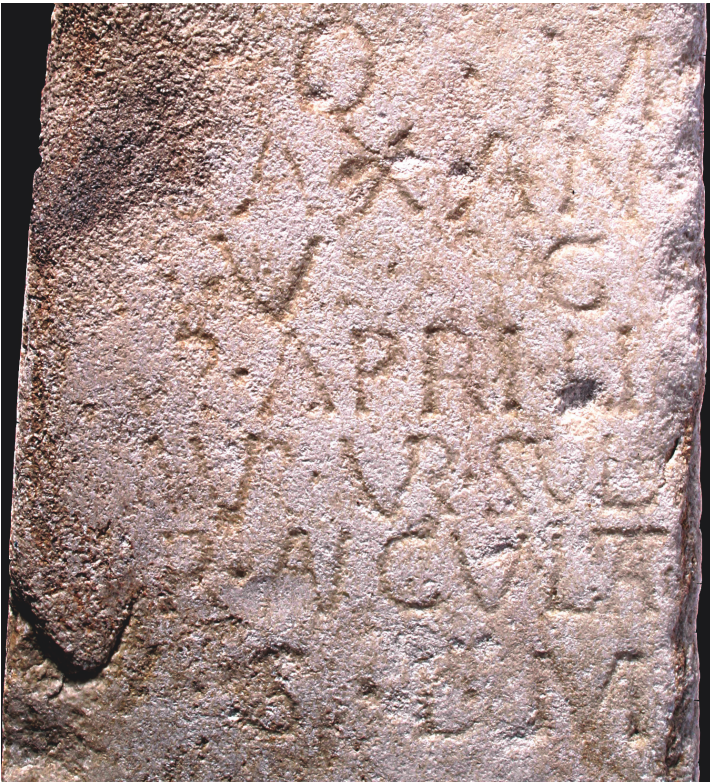 O · M
AX · AN
V C
P · APRILI
VS · VR · SVB
AICVLT
S · L · M